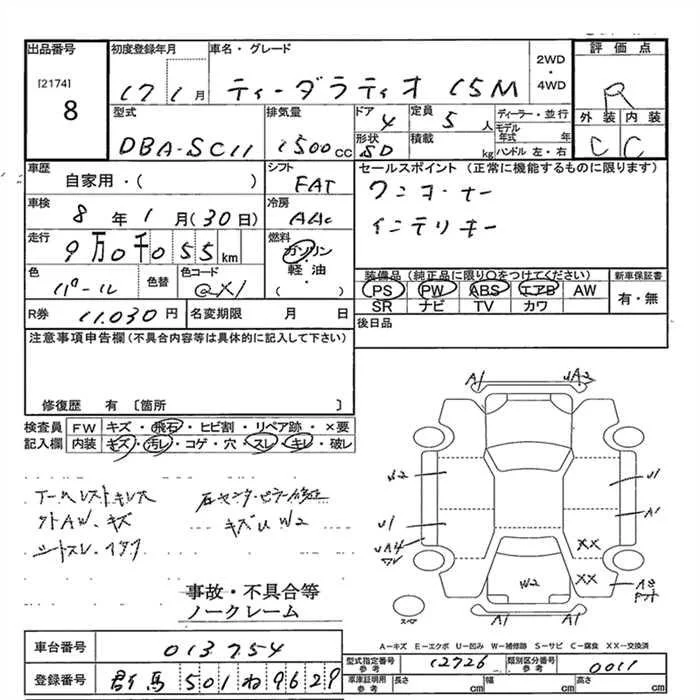 出品番号
[2174]
8
初度登録年月
17 1月
車名・グレード
ティーダラティオ 15M
2WD
・
4WD
評価点
R
外装 内装
C C
型式
DBA-SC11
排気量
1500cc
ドア
4
定員
5人
形状
SD
積載
kg
ディーラー・並行
モデル
年式 年
ハンドル 左・右
車歴
自家用・( )
シフト
FAT
車検
8年1月(30日)
冷房
AAC
走行
9万0千055km
燃料
ガソリン
・
軽油
( )
色
パール
色替
色コード
QX1
R券 11.030円
名変期限 月 日
セールスポイント (正常に機能するものに限ります)
ワンオーナー
インテリキー
装備品(純正品に限り〇をつけてください)
PS PW ABS エアB AW
SR ナビ TV カワ
新車保証書
有・無
後日品
注意事項申告欄(不具合内容等は具体的に記入して下さい)
修復歴 有 〔箇所 〕
検査員
記入欄
FW キズ・飛石・ヒビ割・リペア跡・×要
内装 キズ・汚レ・コゲ・穴・スレ・キレ・破レ
アームレストキレス
右センターピラー修正
キズU W2
事故・不具合等
ノークレーム
A1 UA2
W2 U1
U1 A1
UA4
XX
XX
W2
A1 A1
スペア
A-キズ E-エクボ U-凹み W-補修跡 S-サビ C-腐食 XX-交換済
車台番号 013754
登録番号 群馬 501 ね 9629
型式指定番号
参考
12726
類別区分番号
参考
0011
車庫証明用
参考
長さ cm 幅 cm 高さ cm